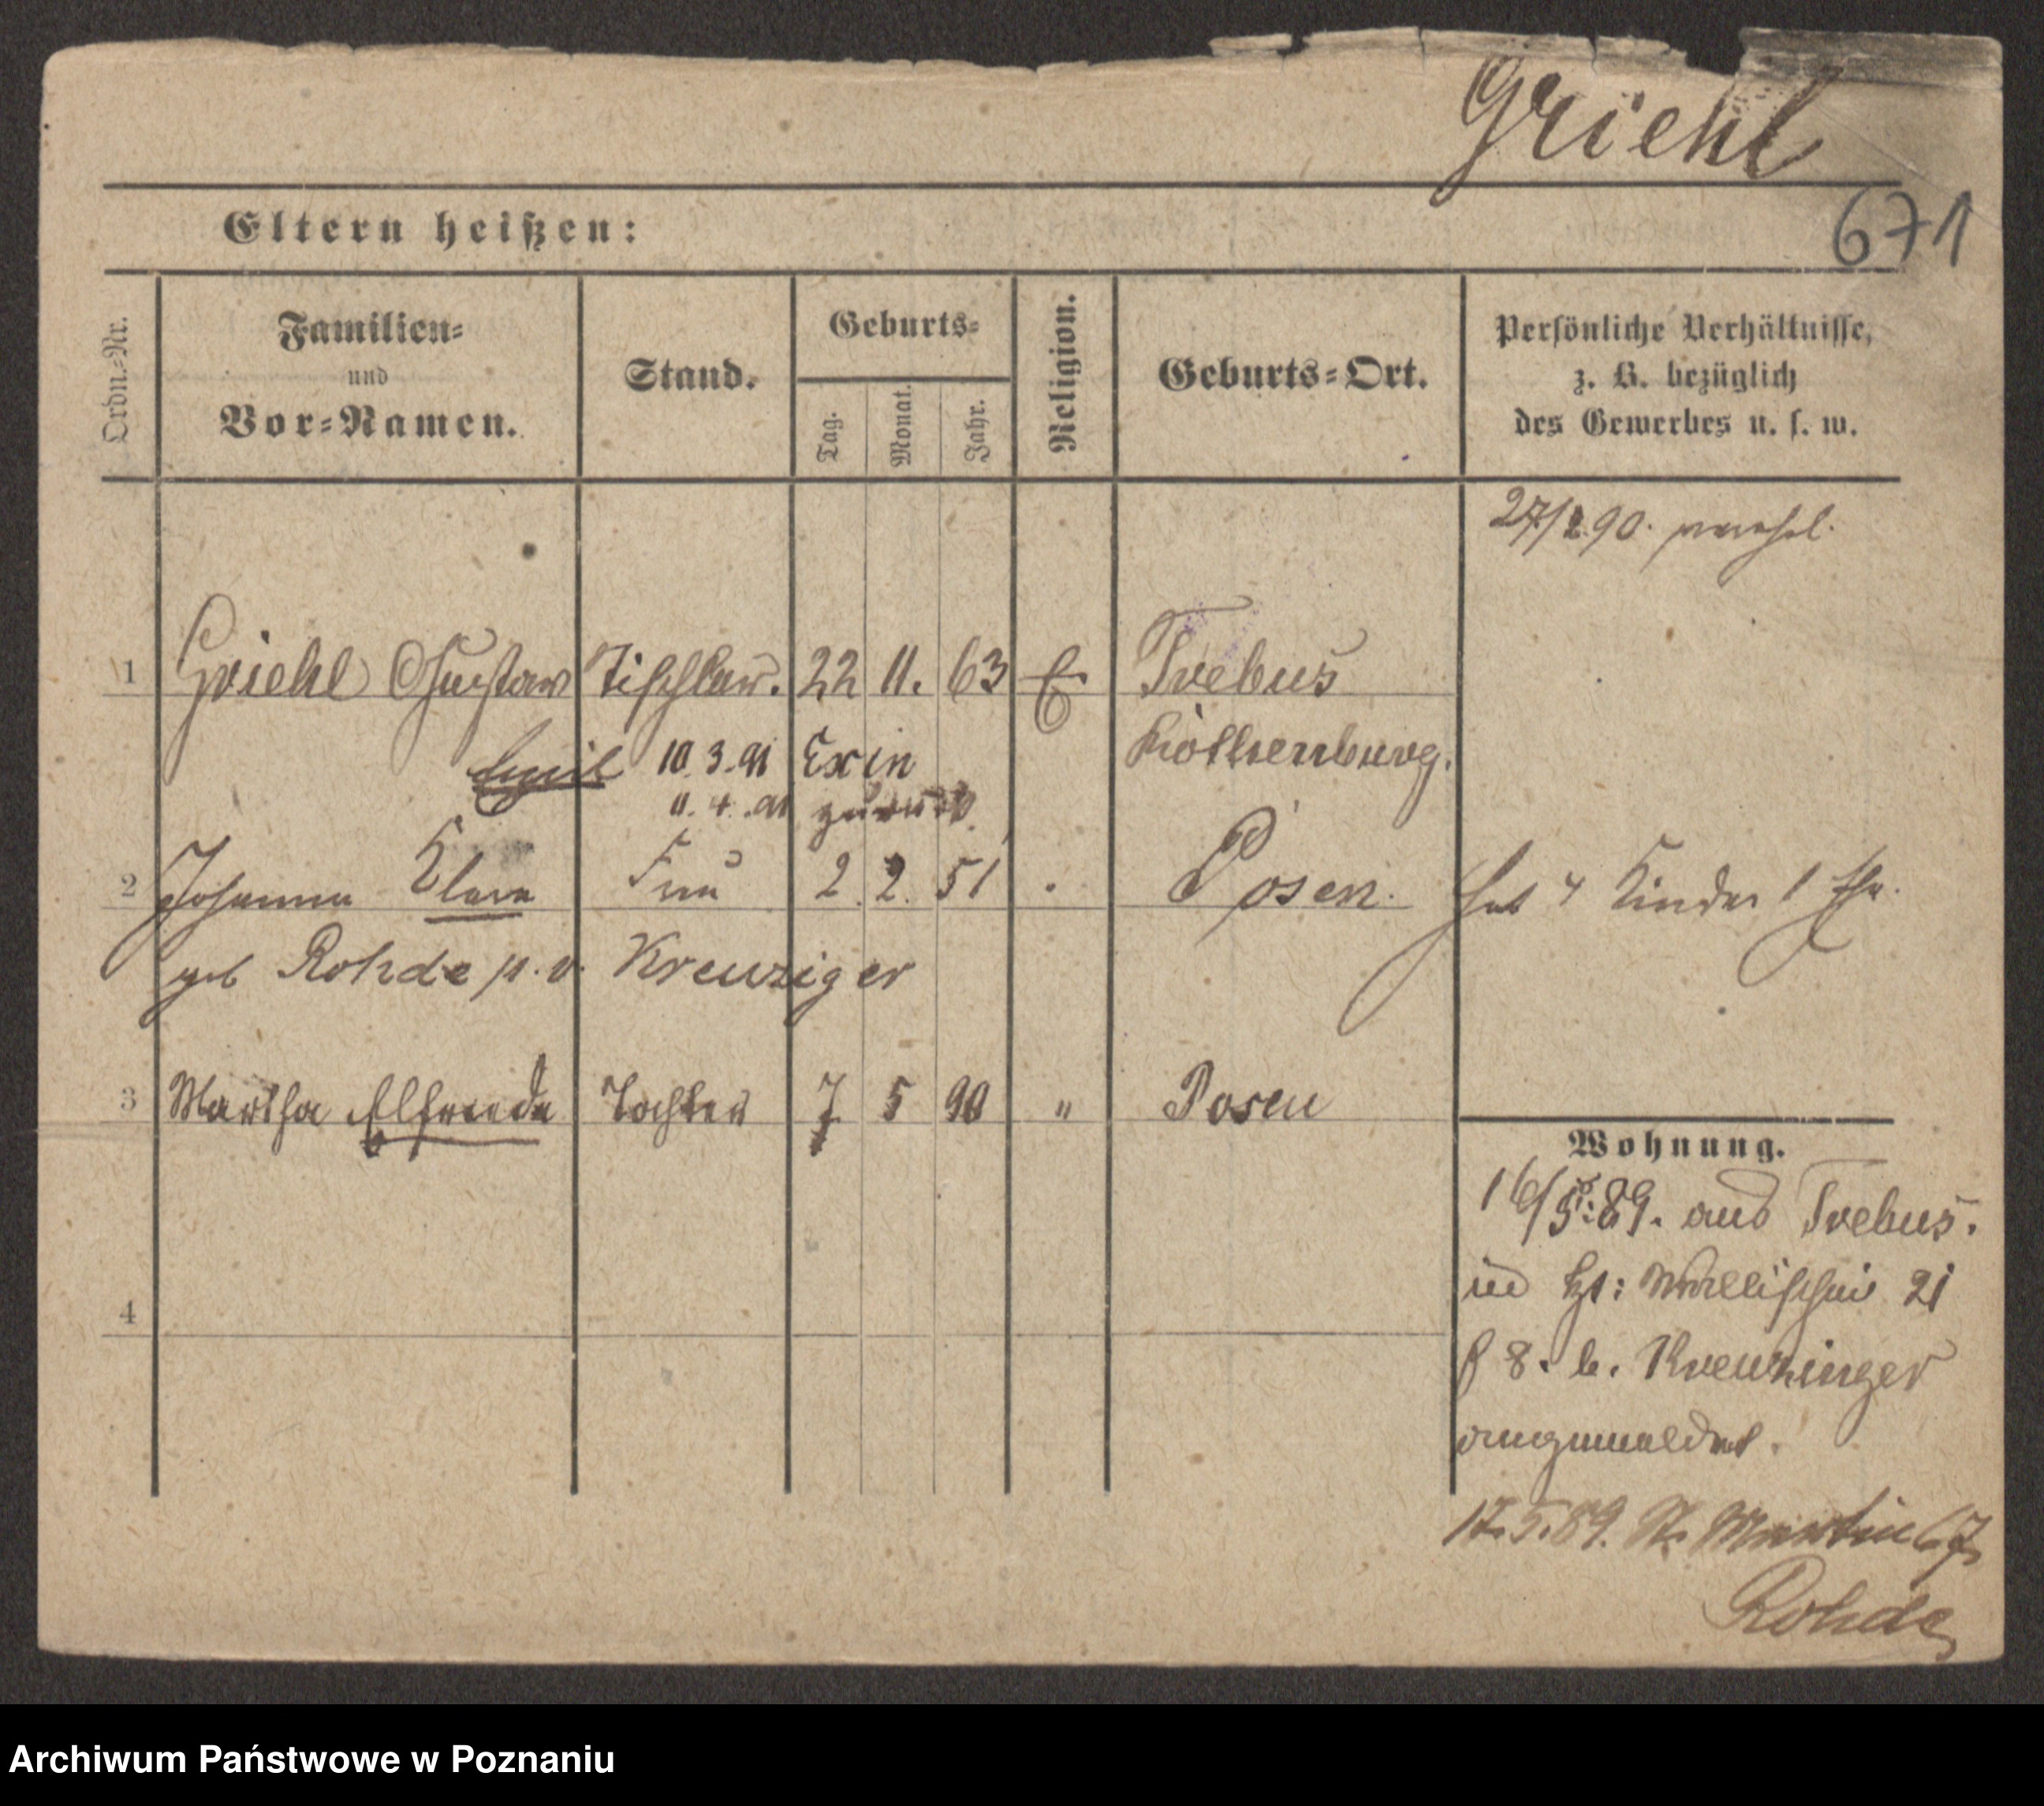 Griehl
671
Eltern heißen:
Ordn.-Nr.
Familien-
und
Vor-Namen.
Stand.
Geburts-
Tag.
Monat.
Jahr.
Religion.
Geburts-Ort.
Persönliche Verhältnisse,
z. B. bezüglich
des Gewerbes u. s. w.
27/2.90. verehel.
1 Griehl Gustav Tischler. 22 11. 63 E Trebus
Emil 10. 3. 91 Exin Rothenburg.
11. 4. 91 zurück
2 Johanna Klara Frau 2. 2. 51 Posen. hat 4 Kinder 1 Ehe.
geb Rohde p. v. Kreuziger
3 Martha Elfriede Tochter 7 5 90 " Posen
4
Wohnung.
16/5.89. aus Trebus.
Wallischei 21
8. b. Kreuzinger
angemeldet.
17.5.89. St. Martin 67
Rohde